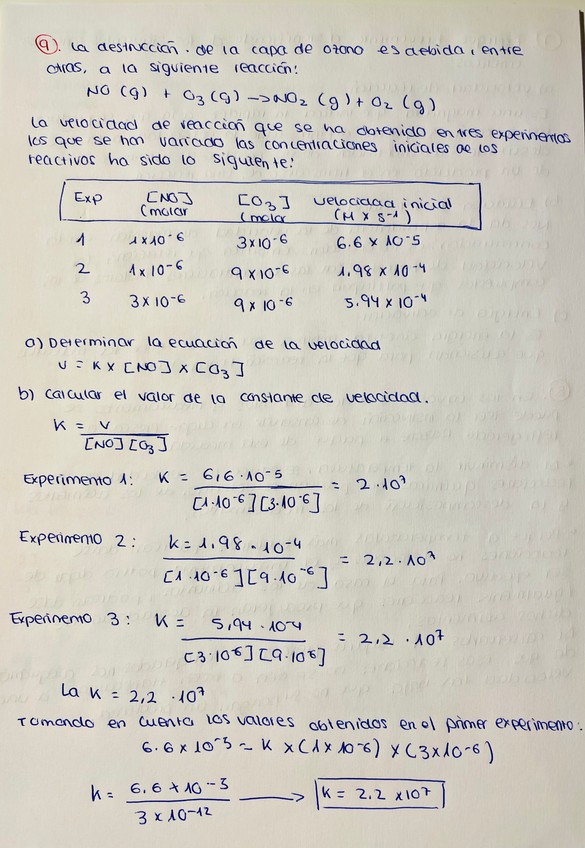 9). La destrucción de la capa de ozono es debida, entre
otras, a la siguiente reacción:
NO (g) + O3 (g) → NO2 (g) + O2 (g)
La velocidad de reacción que se ha obtenido en tres experimentos
los que se han variado las concentraciones iniciales de los
reactivos ha sido lo siguiente:
Exp [NO] (molar [O3] (molar velocidad inicial (M x s-1)
1 1x10-6 3x10-6 6.6 x 10-5
2 1x10-6 9x10-6 1,98 x 10-4
3 3x10-6 9x10-6 5.94 x 10-4
a) Determinar la ecuación de la velocidad
v = K x [NO] x [O3]
b) Calcular el valor de la constante de velocidad.
K = v / [NO][O3]
Experimento 1: K = 6,6·10-5 / [1·10-6][3·10-6] = 2·10⁷
Experimento 2: K = 1,98·10-4 / [1·10-6][9·10-6] = 2,2·10⁷
Experimento 3: K = 5,94·10-4 / [3·10-6][9·10-6] = 2,2·10⁷
La K = 2,2·10⁷
Tomando en cuenta los valores obtenidos en el primer experimento:
6.6 x 10-5 = K x (1x10-6) x (3x10-6)
K = 6,6 x 10-5 / 3 x 10-12 → K = 2.2 x10⁷